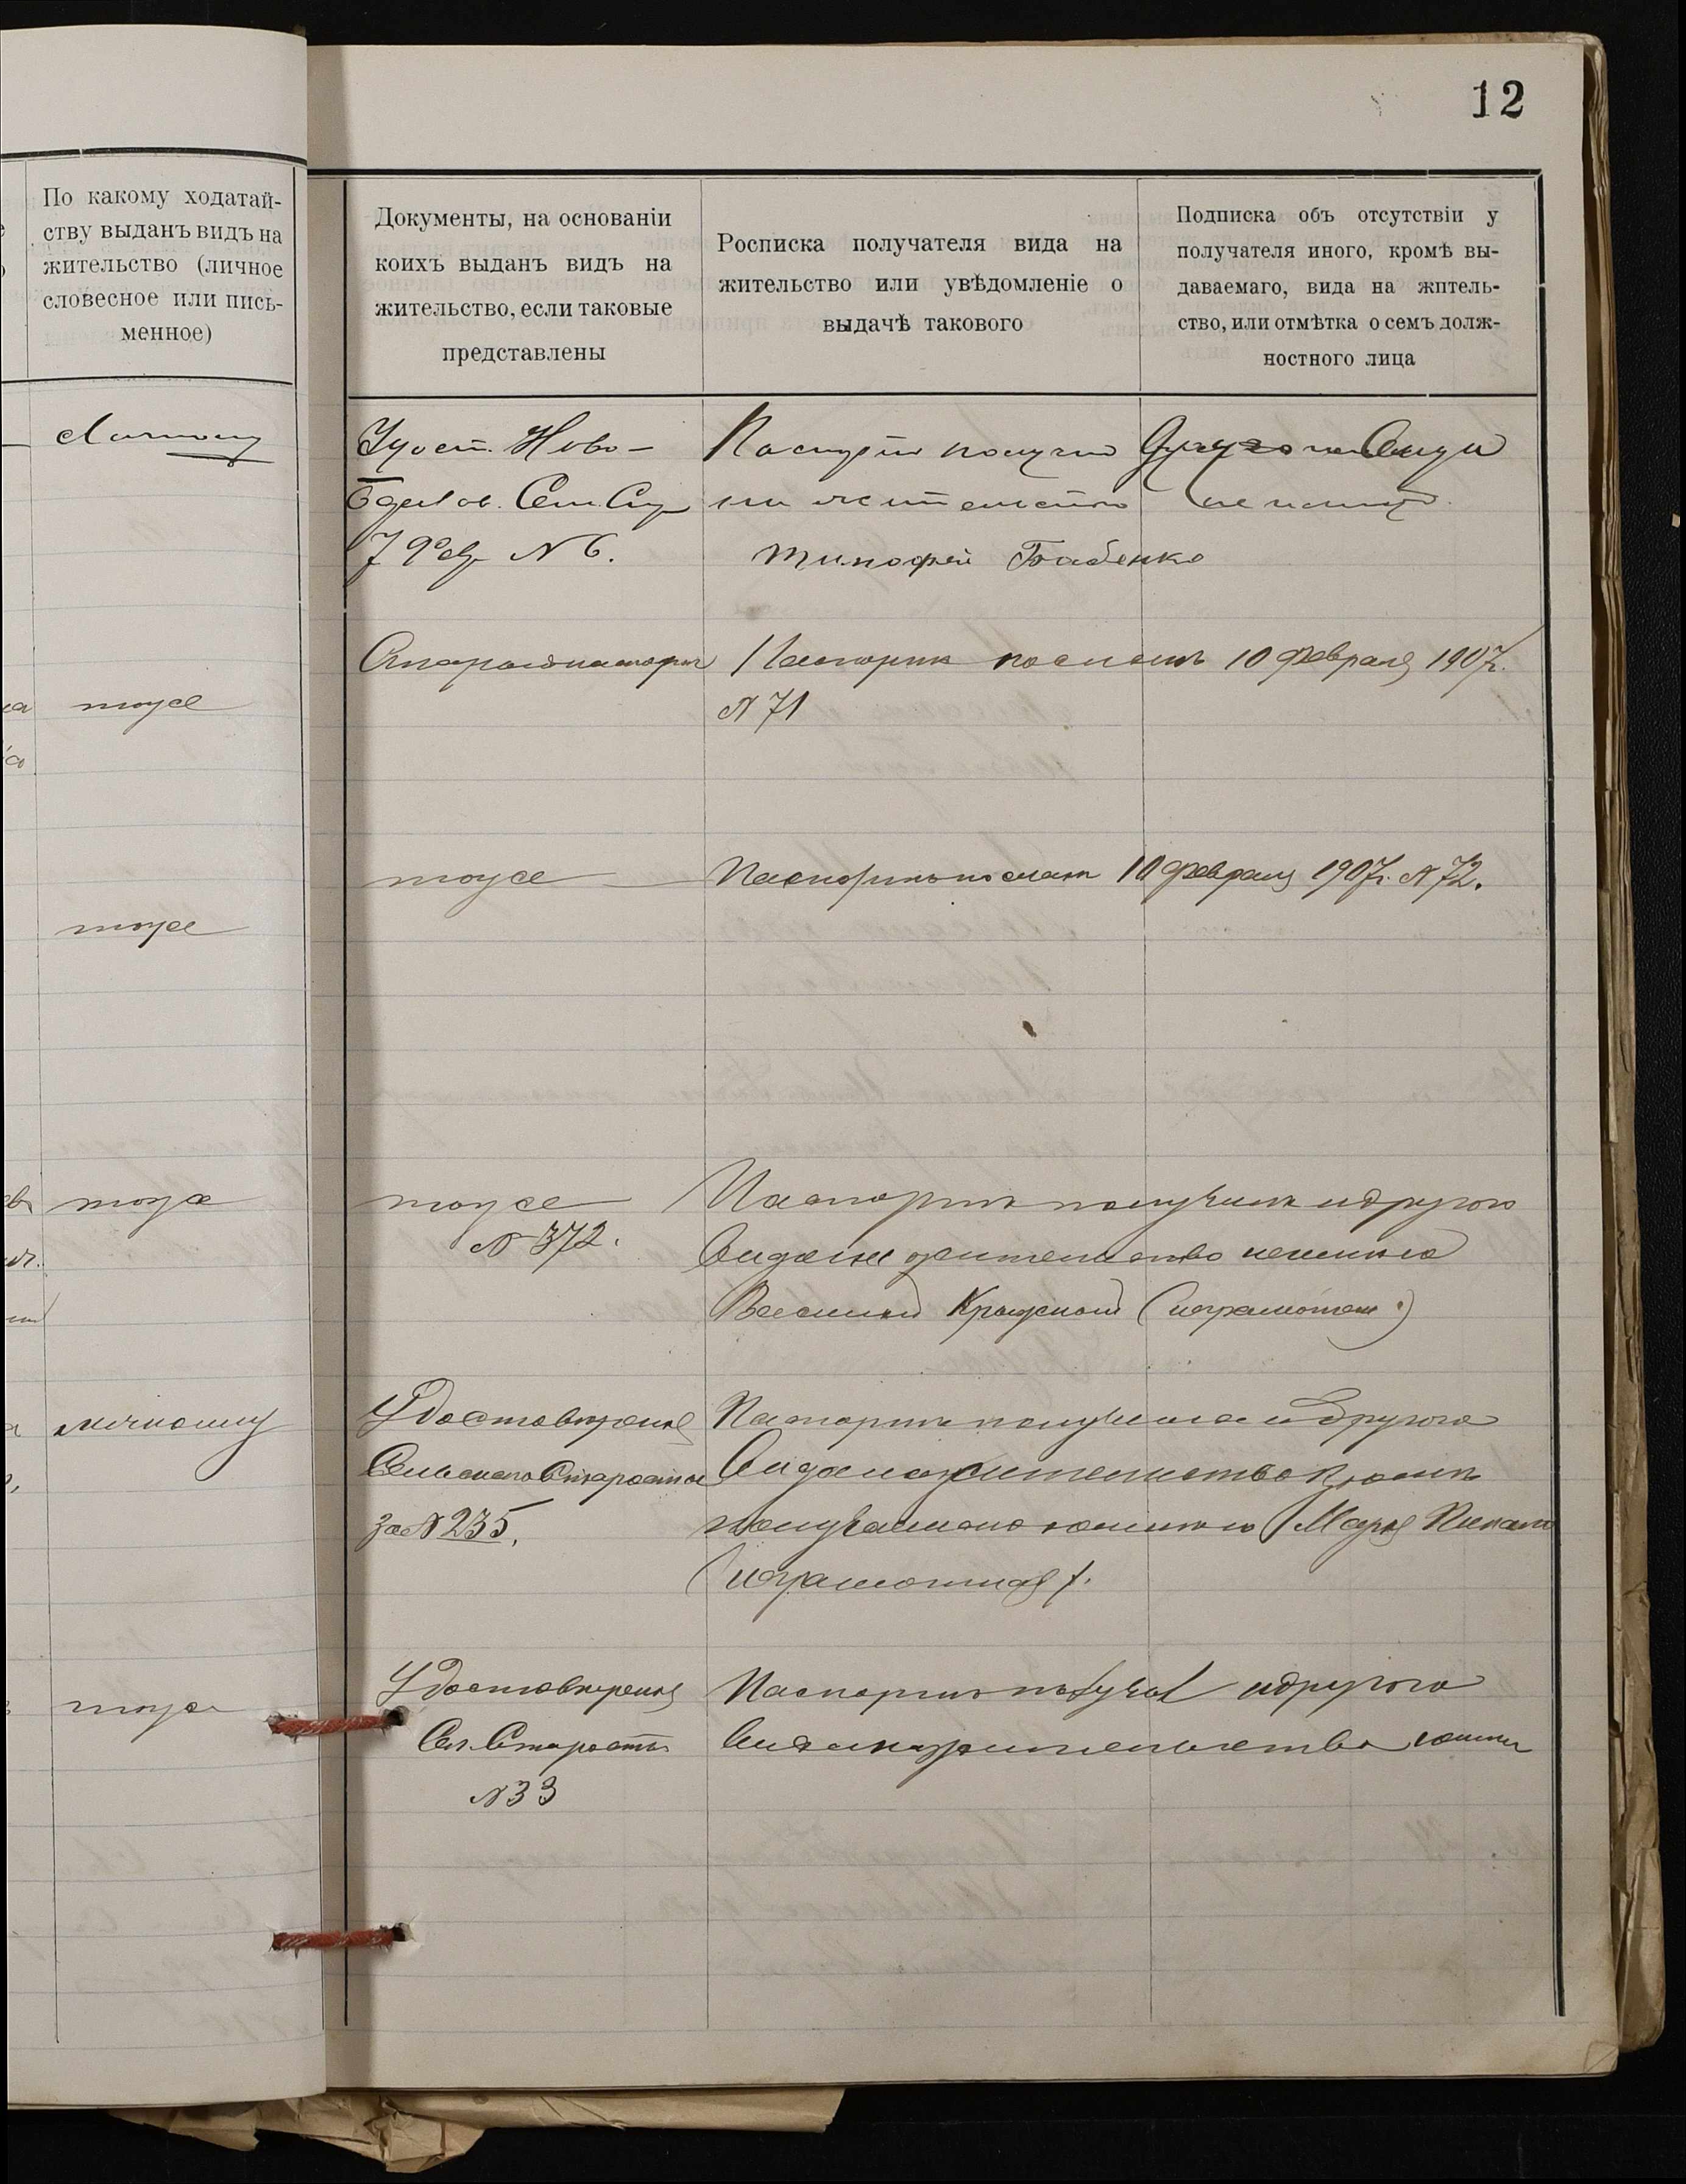 12
По какому ходатай-
ству выданъ видъ на
жительство (личное
словесное или пись-
менное)
Документы, на основаніи
коихъ выданъ видъ на
жительство, если таковые
представлены
Росписка получателя вида на
жительство или увѣдомленіе о
выдачѣ такового
Подписка объ отсутствіи у
получателя иного, кромѣ вы-
даваемаго, вида на жптель-
ство, или отмѣтка о семъ долж-
ностного лица
Личному
Удост. Ново-
Сел. Стар
7 Февр № 6.
Паспортъ получилъ Другого Вида
на жительство не имѣю
Тимофей Бабенко
тоже
Старый паспортъ
Паспортъ посланъ 10 февраля 1907 г.
№ 71
тоже
тоже
Паспортъ посланъ 10 февраля 1907 г. № 72.
тоже
тоже
№ 372.
Паспортъ получилъ и другого
Вида на жительство неимѣю
Василий (неграмотен.)
личному
Удостовѣрение
Сельского Старосты
за № 235.
Паспортъ получила и другого
Вида на жительство кромѣ
получаемого неимѣю Марія
(неграмотная).
тоже
Удостоверения
Сел. Старосты
№ 33
Паспортъ получил и другого
Вида на жительство